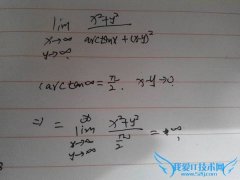 lim x²+y² / arctanx+(x-y)²
x→∞
y→∞.
(arctan∞ = π/2. x-y→0.
⇒ = lim x²+y² / π/2 = +∞.
x→∞
y→∞
我爱IT技术网